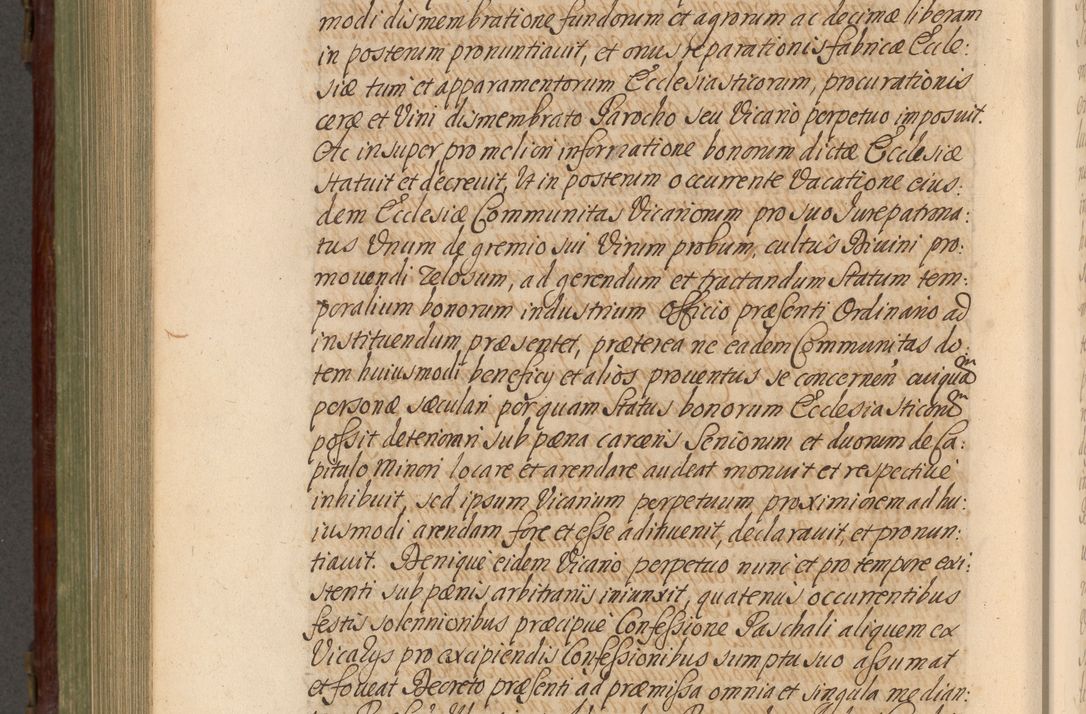 modi dismembratione fundorum et agrorum ac decimæ liberam
in posterum pronuntiavit, et onus reparationis fabricæ Eccle:
siæ tum et apparamentorum Ecclesiasticorum, procurationis
ceræ et Vini dismembrato Parocho seu Vicario perpetuo imposuit.
Ac insuper pro meliori informatione bonorum dictæ Ecclesiæ
statuit et decrevit, Ut in posterum occurrente Vacatione eius:
dem Ecclesiæ Communitas Vicariorum pro suo Iurepatrona:
tus Unum de gremio sui Virum probum, cultûs Divini pro:
movendi Zelosum, ad gerendum et tractandum Statum tem:
poralium bonorum industrium officio præsenti Ordinario ad
instituendum præsentet, præterea ne eadem Communitas do:
tem huiusmodi beneficÿ et alios proventus se concernen cuiquam
personæ sæculari per quam Status bonorum Ecclesiasticorum
possit deteriorari sub pæna carceris Seniorum et duorum de Ca:
pitulo Minori locare et arendare audeat monuit et respective
inhibuit, sed ipsum Vicarium perpetuum proximiorem ad hu:
iusmodi arendam fore et esse adinvenit, declaravit, et pronun:
tiavit. Denique eidem Vicario perpetuo nunc et pro tempore exi:
stenti sub pænis arbitrariis iniunxit, quatenus occurrentibus
festis solennioribus præcipue Confessione Paschali aliquem ex
Vicarÿs pro excipiendis Confessionibus sumptu suo assumat
et foveat Decreto præsenti ad præmissa omnia et singula median: